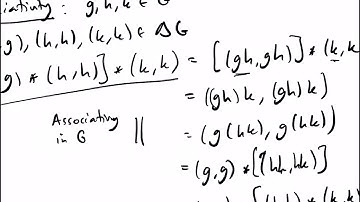 ciativity: g, h, k ∈ G
g), (h,h), (k,k) ∈ ΔG
g) * (h,h)] * (k,k) = [(gh, gh)] * (k, k
= ((gh)k, (gh)k)
Associativity in G || = (g(hk), g(hk))
= (g,g) * [(hk, hk)]
[(h,h) * (k,k